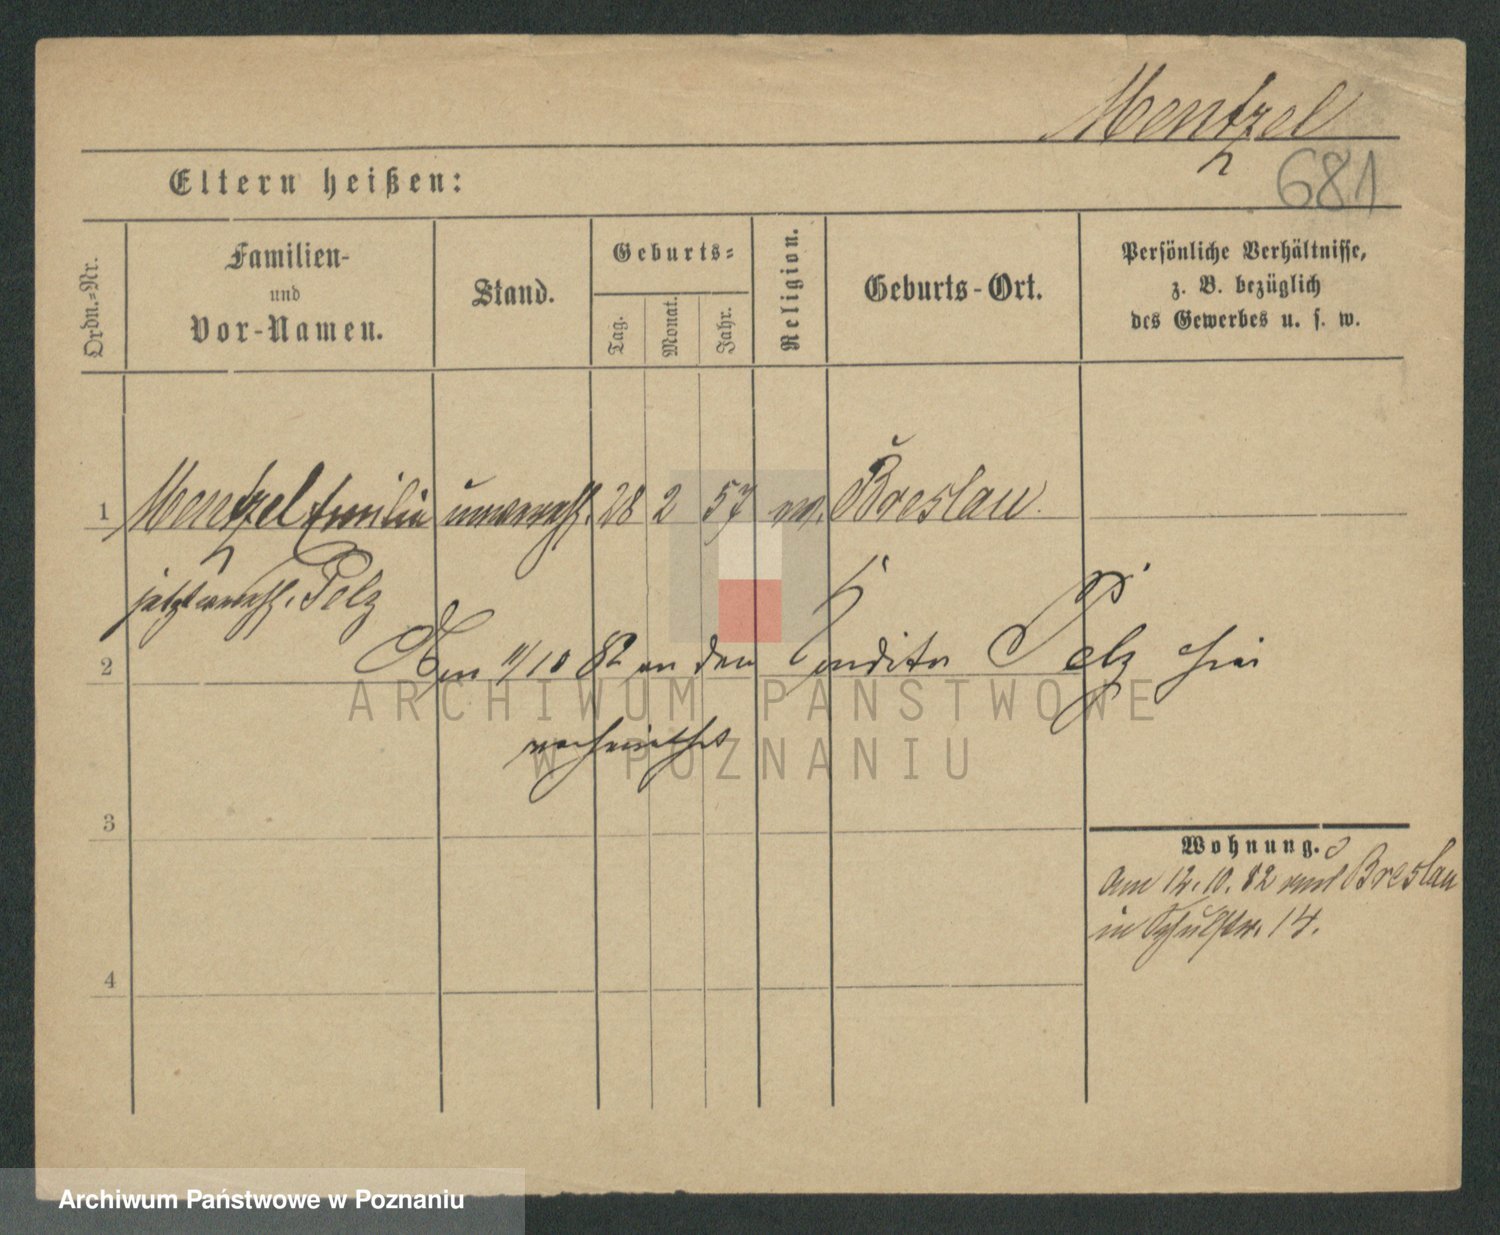 Mentzel
681
Eltern heißen:
Ordn.=Nr.
Familien-
und
Vor-Namen.
Stand.
Geburts=
Tag.
Monat.
Jahr.
Religion.
Geburts-Ort.
Persönliche Verhältnisse,
z. B. bezüglich
des Gewerbes u. s. w.
1 Mentzel Emilie unvereh. 28 2 57 ev. Breslau.
jetzt vereh. Pelz
2 Am 11/10 82 an den Conditor Pelz hier
verheirathet
3
Wohnung.
Am 12.10.82 aus Breslau
in Schulstr. 14.
4
ARCHIWUM PAŃSTWOWE
W POZNANIU
Archiwum Państwowe w Poznaniu